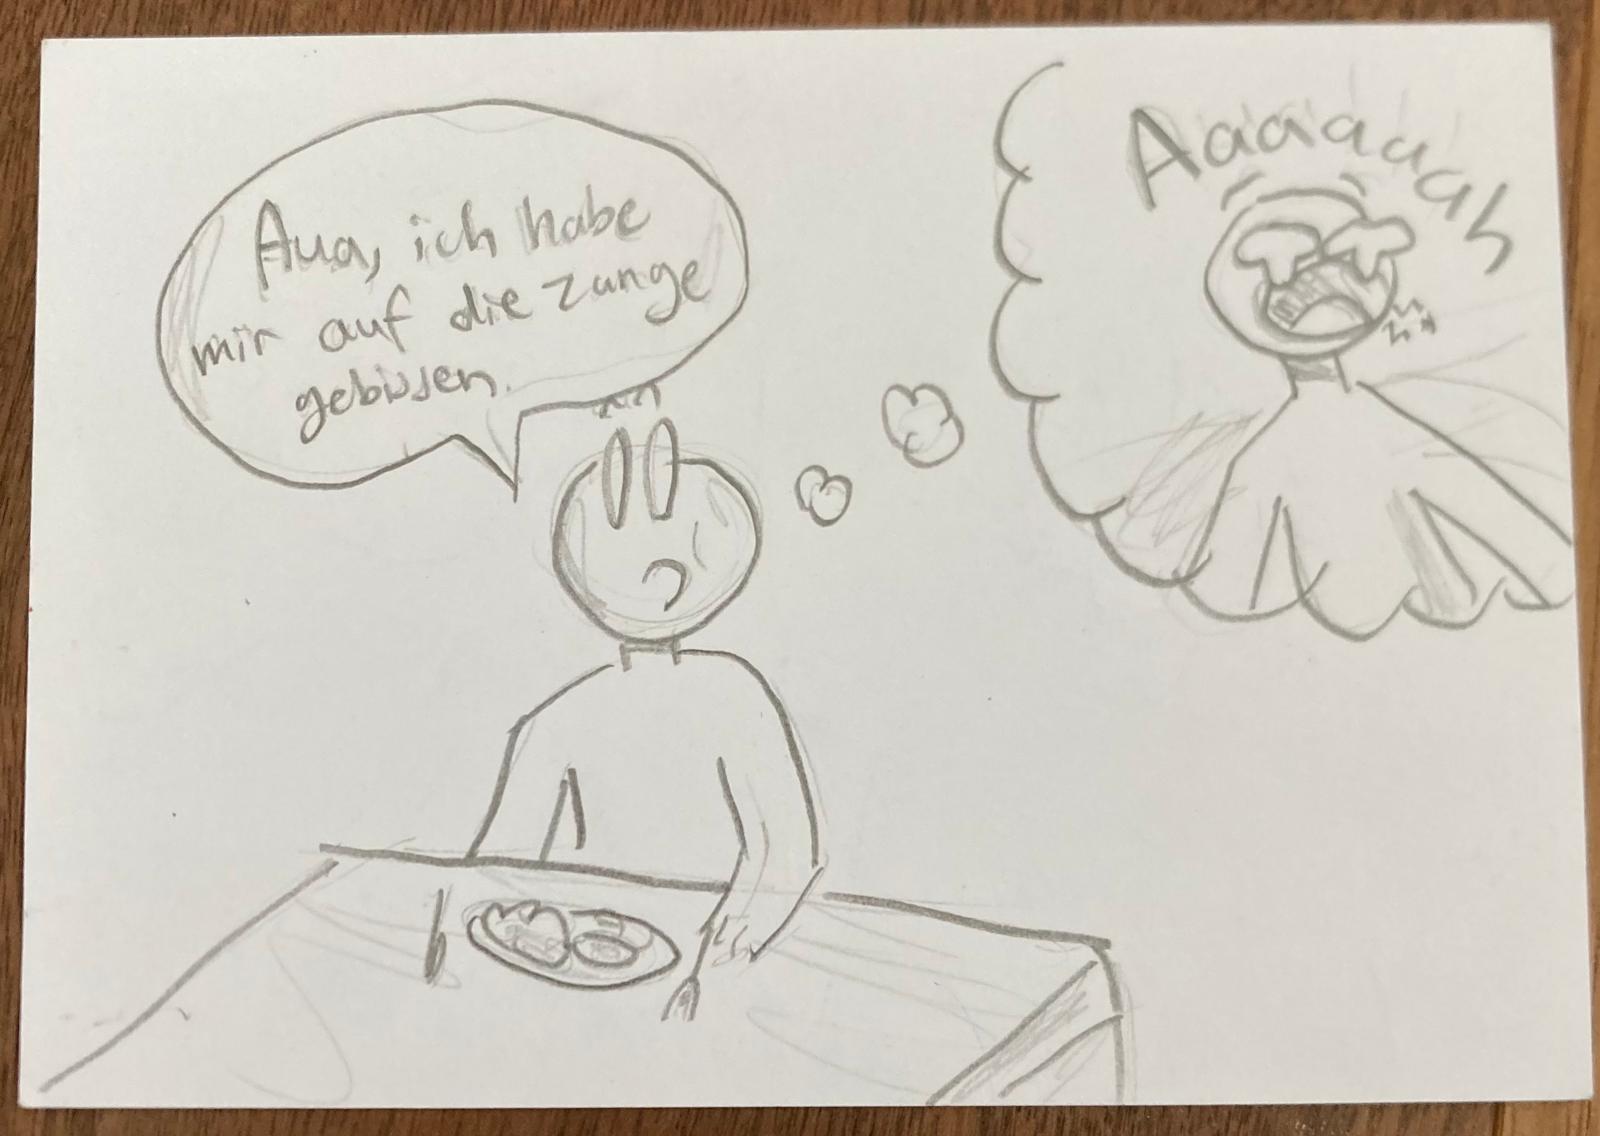 Aua, ich habe
mir auf die zunge
gebissen.
Aaaaaaah